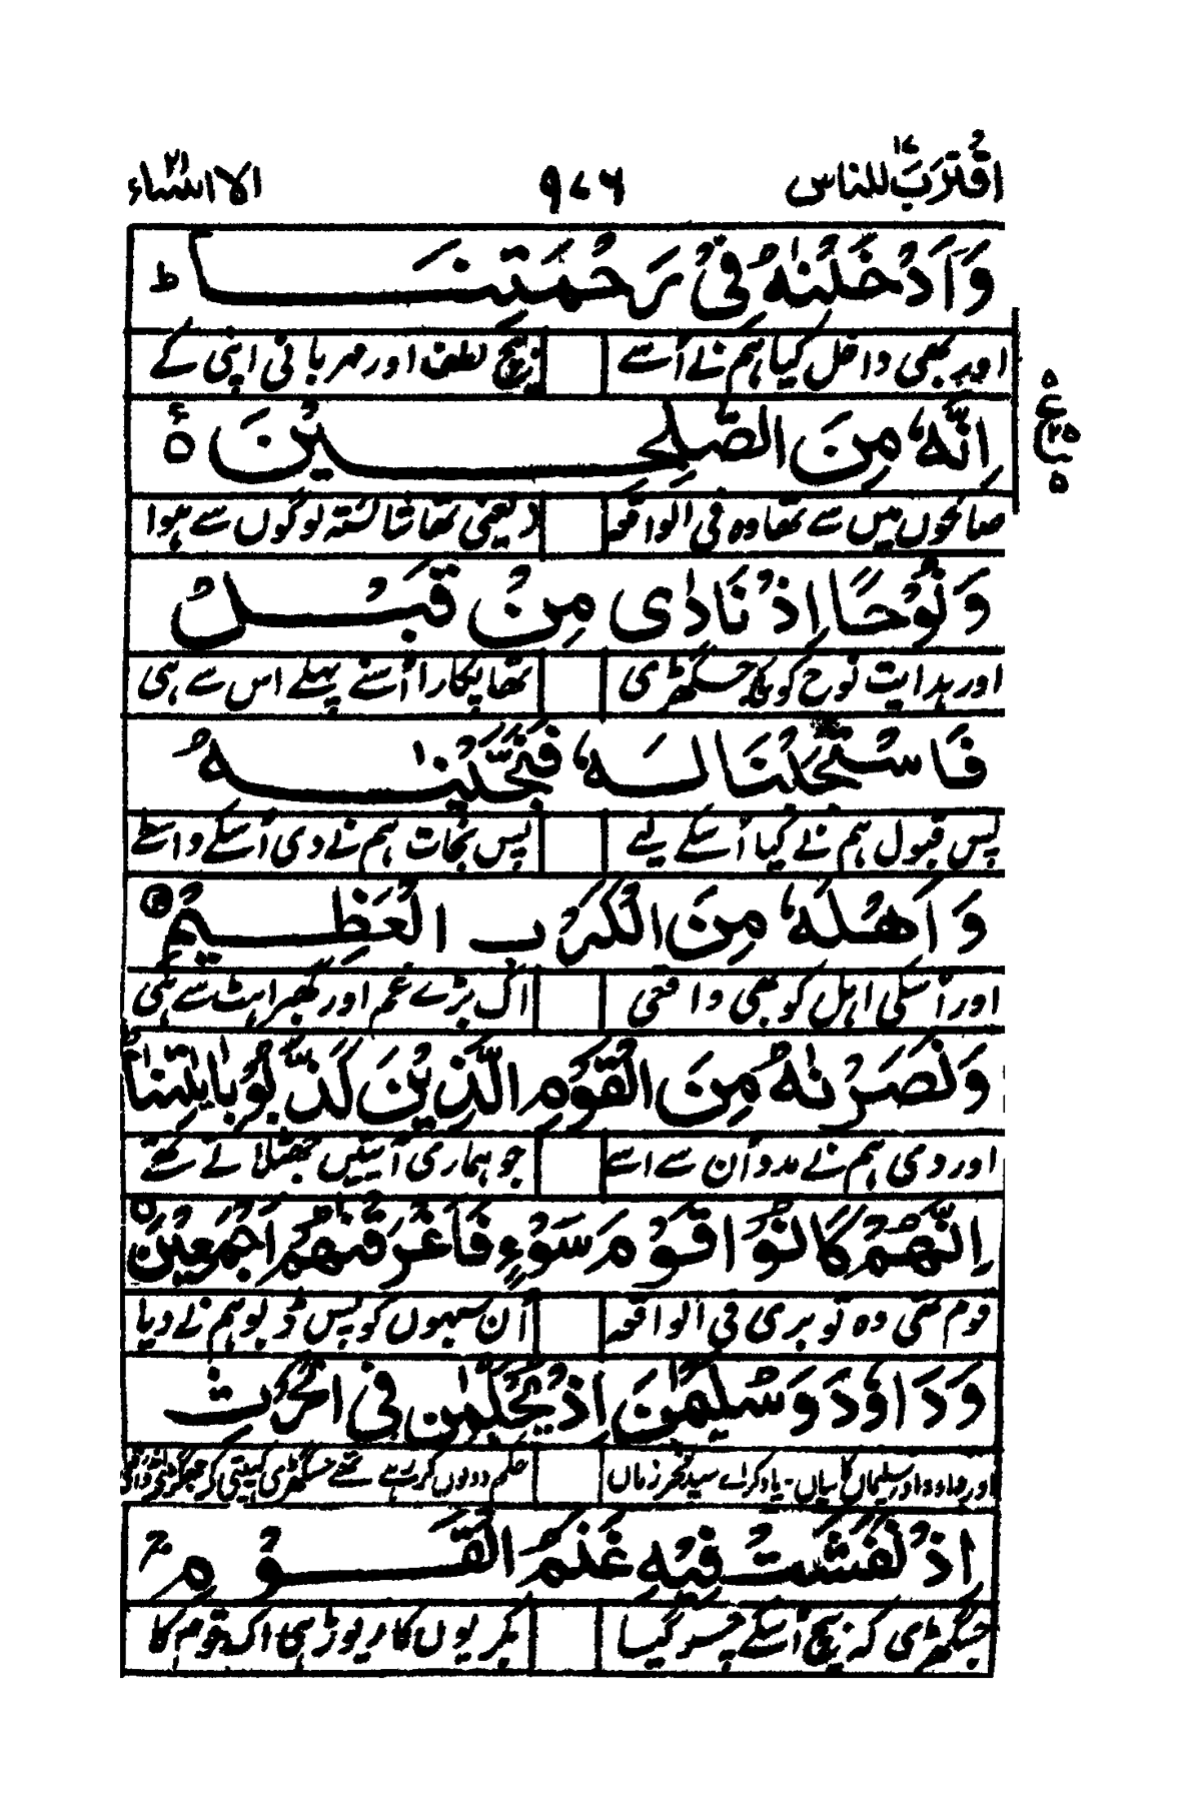 اقترب للناس ۱۷ ۹۷۶ الانبیاء ۲۱
وَاَدْخَلْنٰهُ فِیْ رَحْمَتِنَا ط
اور بھی داخل کیا ہم نے اُسے بیچ لطف اور مہربانی اپنی کے
اِنَّهٗ مِنَ الصّٰلِحِیْنَ ۵
صالحوں میں سے تھا وہ فی الواقعہ یعنی تھا شائستہ لوگوں سے ہوا
وَنُوْحًا اِذْ نَادٰی مِنْ قَبْلُ
اور ہدایت نوح کو کہ جس گھڑی تھا پکارا اُسنے پہلے اس سے ہی
فَاسْتَجَبْنَا لَهٗ فَنَجَّیْنٰهُ
پس قبول ہم نے کیا اُسکے لیے پس نجات ہم نے دی اُسکے واسطے
وَاَهْلَهٗ مِنَ الْكَرْبِ الْعَظِیْمِ
اور اُسکی اہل کو بھی واقعی اک بڑے غم اور گھبراہٹ سے ہی
وَنَصَرْنٰهُ مِنَ الْقَوْمِ الَّذِیْنَ كَذَّبُوْا بِاٰیٰتِنَا
اور دی ہم نے مدد اُن سے اسے جو ہماری آیتیں جھٹلاتے تھے
اِنَّهُمْ كَانُوْا قَوْمَ سَوْءٍ فَاَغْرَقْنٰهُمْ اَجْمَعِیْنَ ۵
قوم تھی وہ تو بری فی الواقعہ اُن سبھوں کو پس ڈبو ہم نے دیا
وَدَاوٗدَ وَسُلَیْمٰنَ اِذْ یَحْكُمٰنِ فِی الْحَرْثِ
اور داود اور سلیماں کا بیاں۔ یاد کر اے سید فخر زماں حکم دونوں کر رہے تھے جس گھڑی کھیتی کے جھگڑے
اِذْ نَفَشَتْ فِیْهِ غَنَمُ الْقَوْمِ ج
جس گھڑی کہ بیچ اُسکے چر گیا بکریوں کا ریوڑ ہی اک قوم کا
ع ۵ ۲۵ ۵